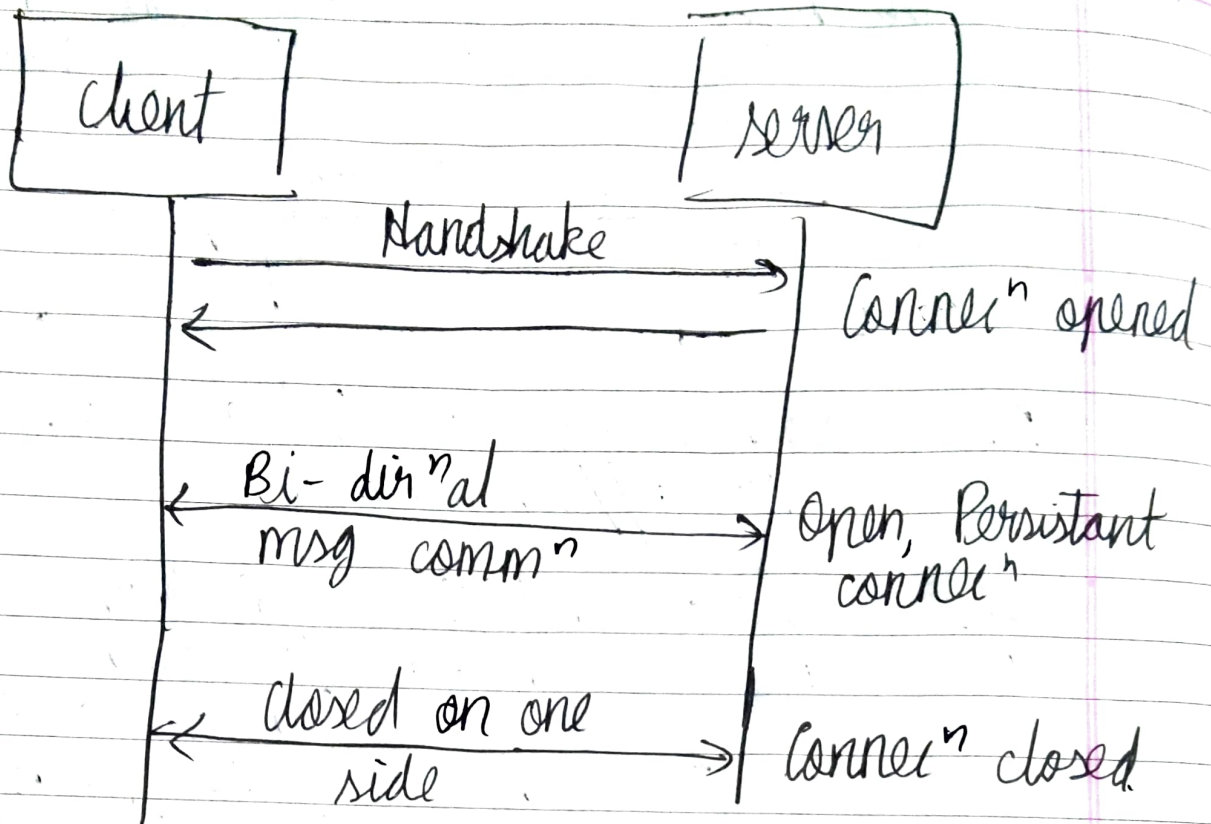 Client
server
Handshake
Connecⁿ opened
Bi-dirⁿal
msg commⁿ
Open, Persistant
connecⁿ
Closed on one
side
Connecⁿ closed.